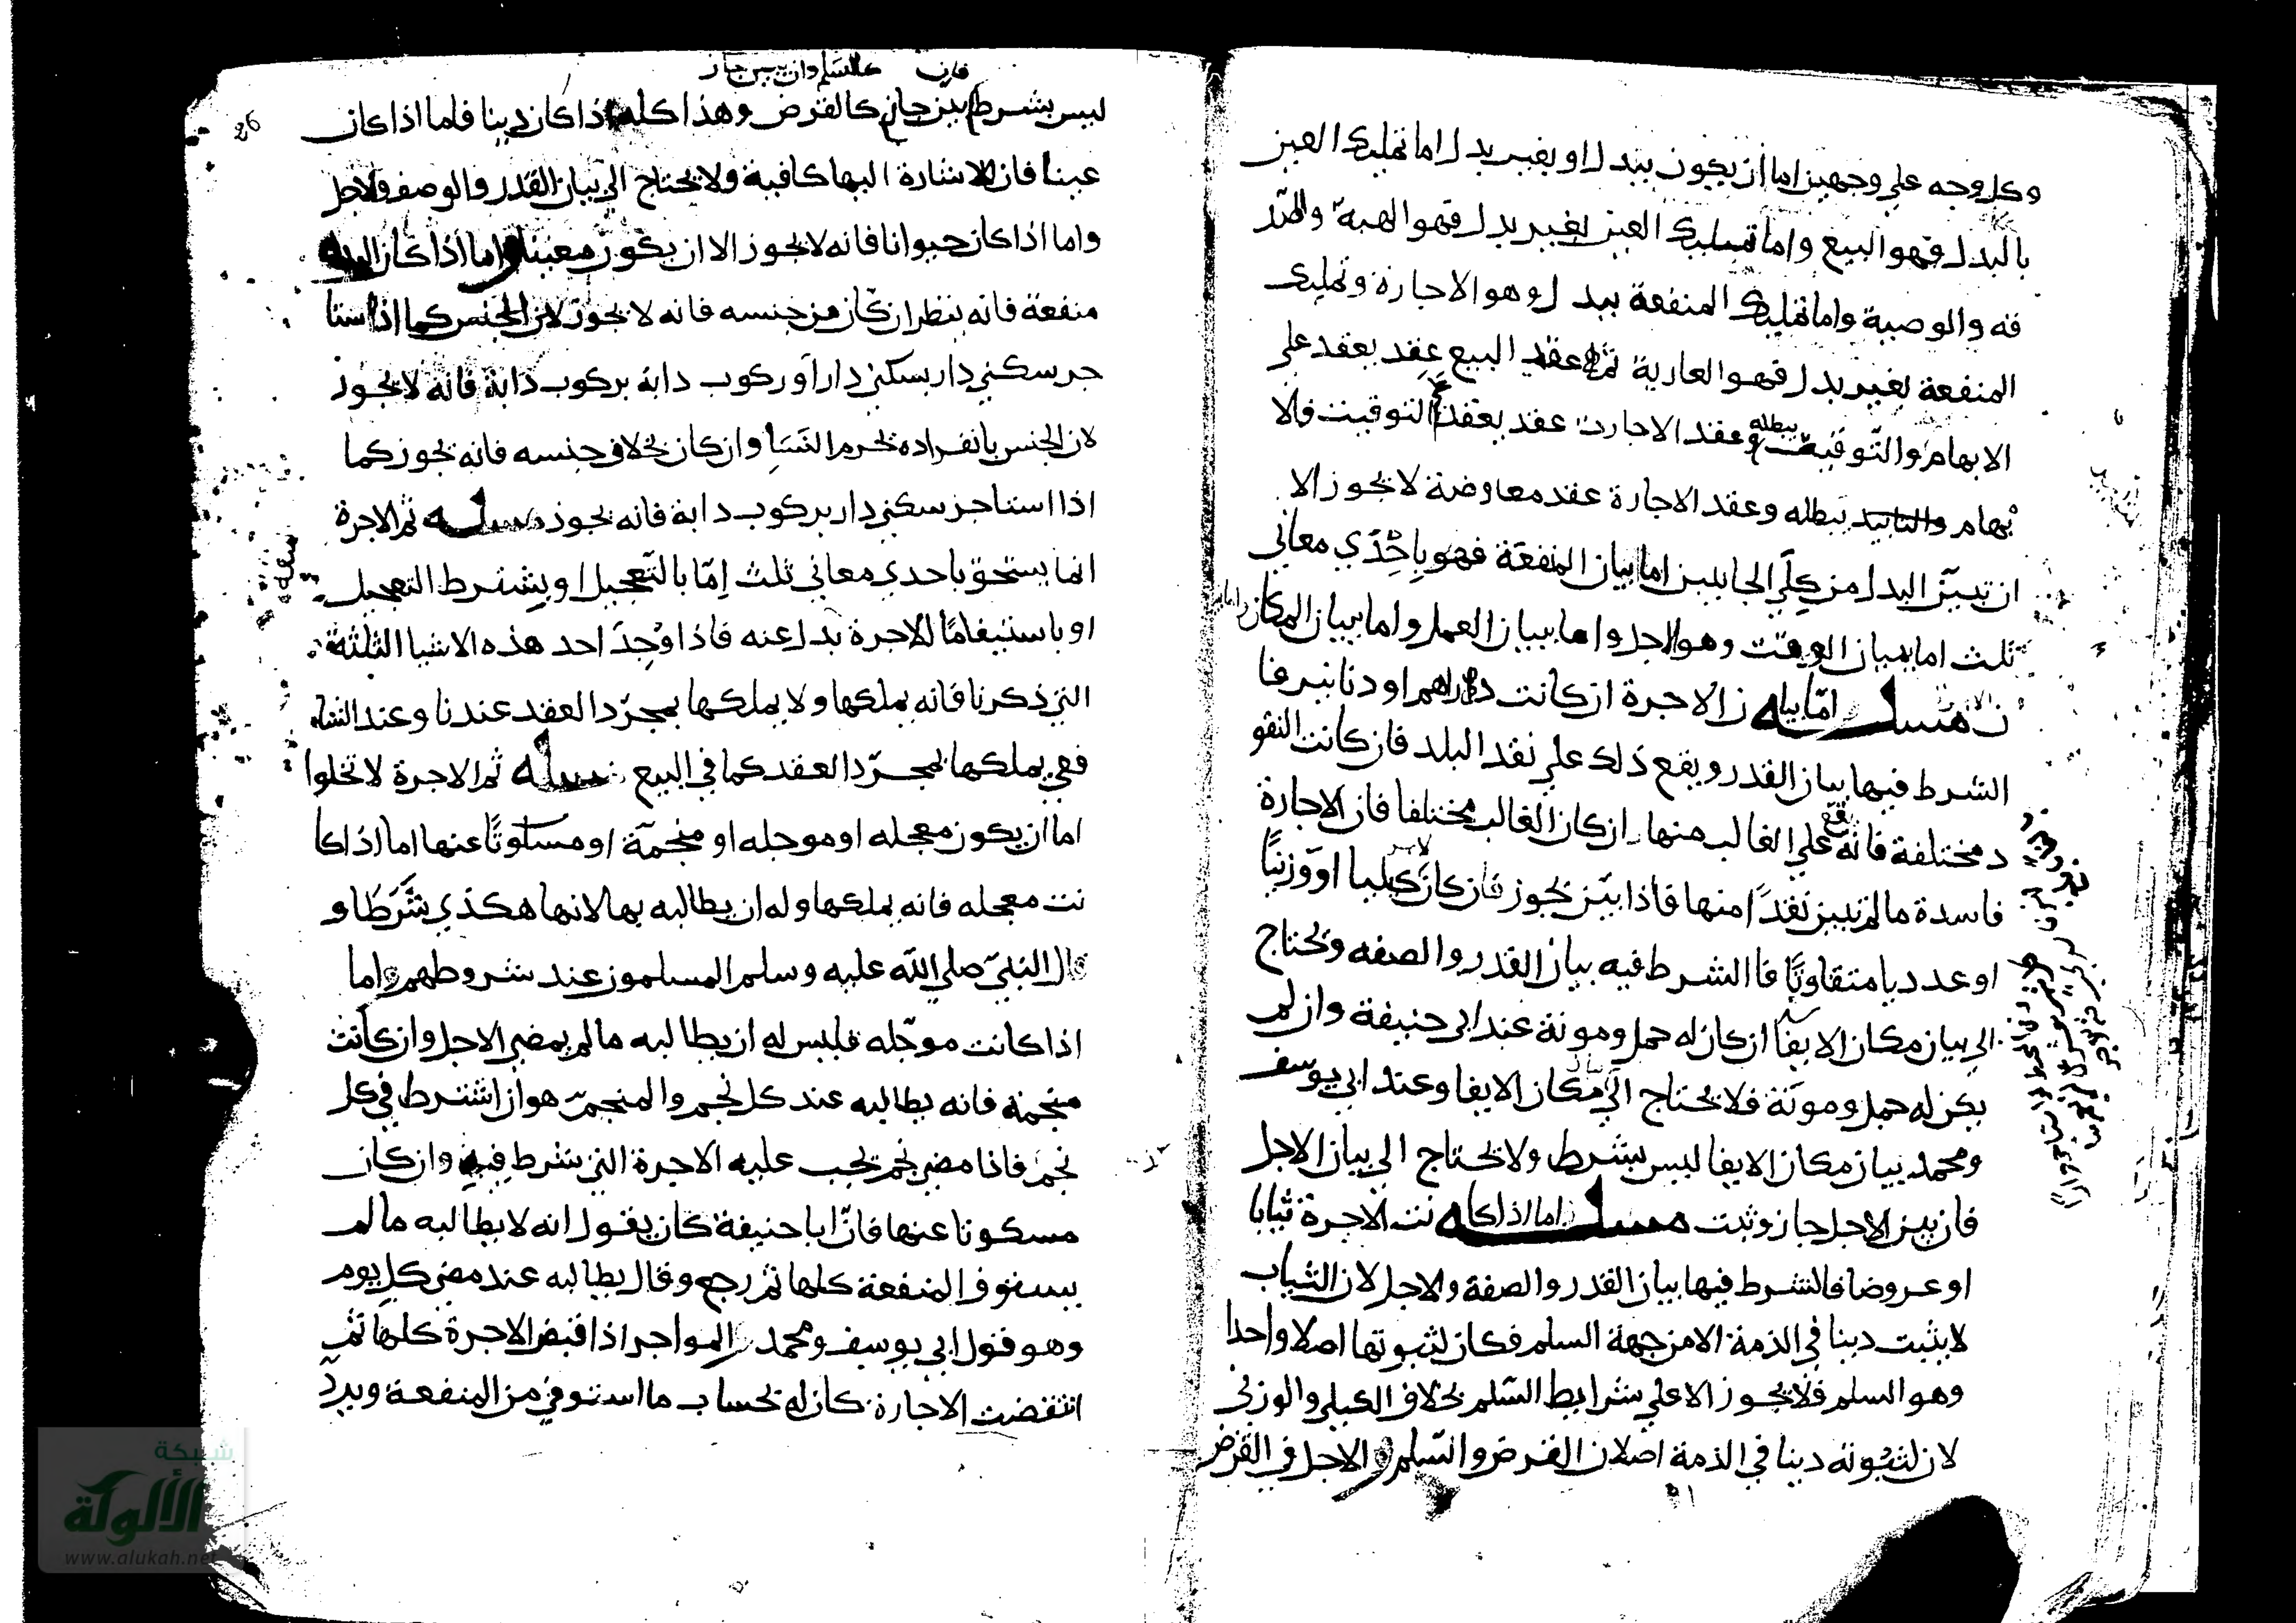 وكل وجه علي وجهين اما أن يكون ببدل او بغير بدل اما تمليك العين
بالبدل فهو البيع واما تمليك العين بغير بدل فهو الهبة والصد
قه والوصية واما تمليك المنفعة ببدل وهو الاجارة وتمليك
المنفعة بغير بدل فهو العارية ثم عقد البيع عقد يعقد علي
الابهام والتوقيت يبطله وعقد الاجارت عقد يعقد علي التوقيت فالا
بهام والتابيد يبطله وعقد الاجارة عقد معاوضة لا يجوز الا
ان تبين البدل من كلي الجانبين اما بيان المنفعة فهو باحدي معاني
ثلث اما ببيان الوقت وهو الاجل واما ببيان العمل واما ببيان المكان
مسله اما بيان الاجرة ان كانت دراهم او دنانير فا
الشرط فيها بيان القدر ويقع ذلك علي نقد البلد فان كانت النقو
د مختلفة فانه يقع علي الغالب منها ان كان الغالب مختلفا فان الاجارة
فاسدة ما لم تبين نقدا منها فاذا بين يجوز فان كان كيليا او وزنيا
او عدديا متقاوتا فا الشرط فيه بيان القدر والصفه وتحتاج
الي بيان مكان الايفا ان كان له حمل ومونة عند ابي حنيفة وان لم
يكن له حمل ومونة فلا يحتاج الي مكان الايفا وعند ابي يوسف
ومحمد بيان مكان الايفا ليس بشرط ولا يحتاج الي بيان الاجل
فان بين الاجل جاز وثبت مسله اما اذا كانت الاجرة ثيابا
او عروضا فالشرط فيها بيان القدر والصفة والاجل لان الثياب
لا يثبت دينا في الذمة الا من جهة السلم فكان لثبوتها اصلا واحدا
وهو السلم فلا يجوز الا علي شرايط السلم بخلاف الكيلي والوزني
لان لثبوته دينا في الذمة اصلان القرض والسلم والاجل في القرض
26
فان كالسلم وان بين جاز
ليس بشرط بين جاز كالقرض وهذا كله اذا كان دينا فاما اذا كان
عينا فان الاشارة اليها كافية ولا يحتاج الي بيان القدر والوصف والاجل
واما اذا كان حيوانا فانه لا يجوز الا ان يكون معينا واما اذا كان
منفعة فانه ينظر ان كان من جنسه فانه لا يجوز لان الجنس كما اذا استا
جر سكني دار بسكني دار او ركوب دابة بركوب دابة فانه لا يجوز
لان الجنس بانفراده يحرم النسا وان كان بخلاف جنسه فانه يجوز كما
اذا استاجر سكني دار بركوب دابة فانه يجوز مسله ثم الاجرة
انما يستحق باحدي معاني ثلث اما بالتعجيل او بشترط التعجيل
او باستيفا ما الاجرة بدل عنه فاذا وجد احد هذه الاشيا الثلثة
التي ذكرنا فانه يملكها ولا يملكها بمجرد العقد عندنا وعند الشا
فعي يملكها بمجرد العقد كما في البيع مسله ثم الاجرة لا تخلوا
اما ان يكون معجله او موجله او منجمة او مسكوتا عنها اما اذا كا
نت معجله فانه يملكها وله ان يطالبه بها لانها هكذي شرطا و
قال النبي صلي الله عليه وسلم المسلمون عند شروطهم واما
اذا كانت موجله فليس له ان يطالبه ما لم يمضي الاجل وان كانت
منجمة فانه يطالبه عند كل نجم والمنجم هو ان اشترط في كل
نجم فاذا مضي نجم تجب عليه الاجرة التي شرط فيه وان كان
مسكوتا عنها فان ابا حنيفة كان يقول انه لا يطالبه ما لم
يستوف المنفعة كلها ثم رجع وقال يطالبه عند مضي كل يوم
وهو قول ابي يوسف ومحمد المواجر اذا قبض الاجرة كلها ثم
انتقضت الاجارة كان له بحساب ما استوفي من المنفعة ويرد
شبكة
الألوكة
www.alukah.net